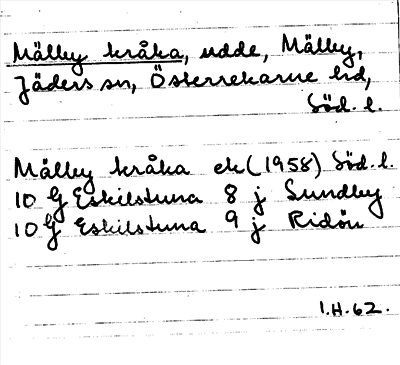 Mälby kråka, udde, Mälby,
Jäders sn, Österrekarne hd,
Söd. l.
Mälby kråka ek (1958) Söd. l.
10 G Eskilstuna 8 j Sundby
10 G Eskilstuna 9 j Ridön
I.H.62.